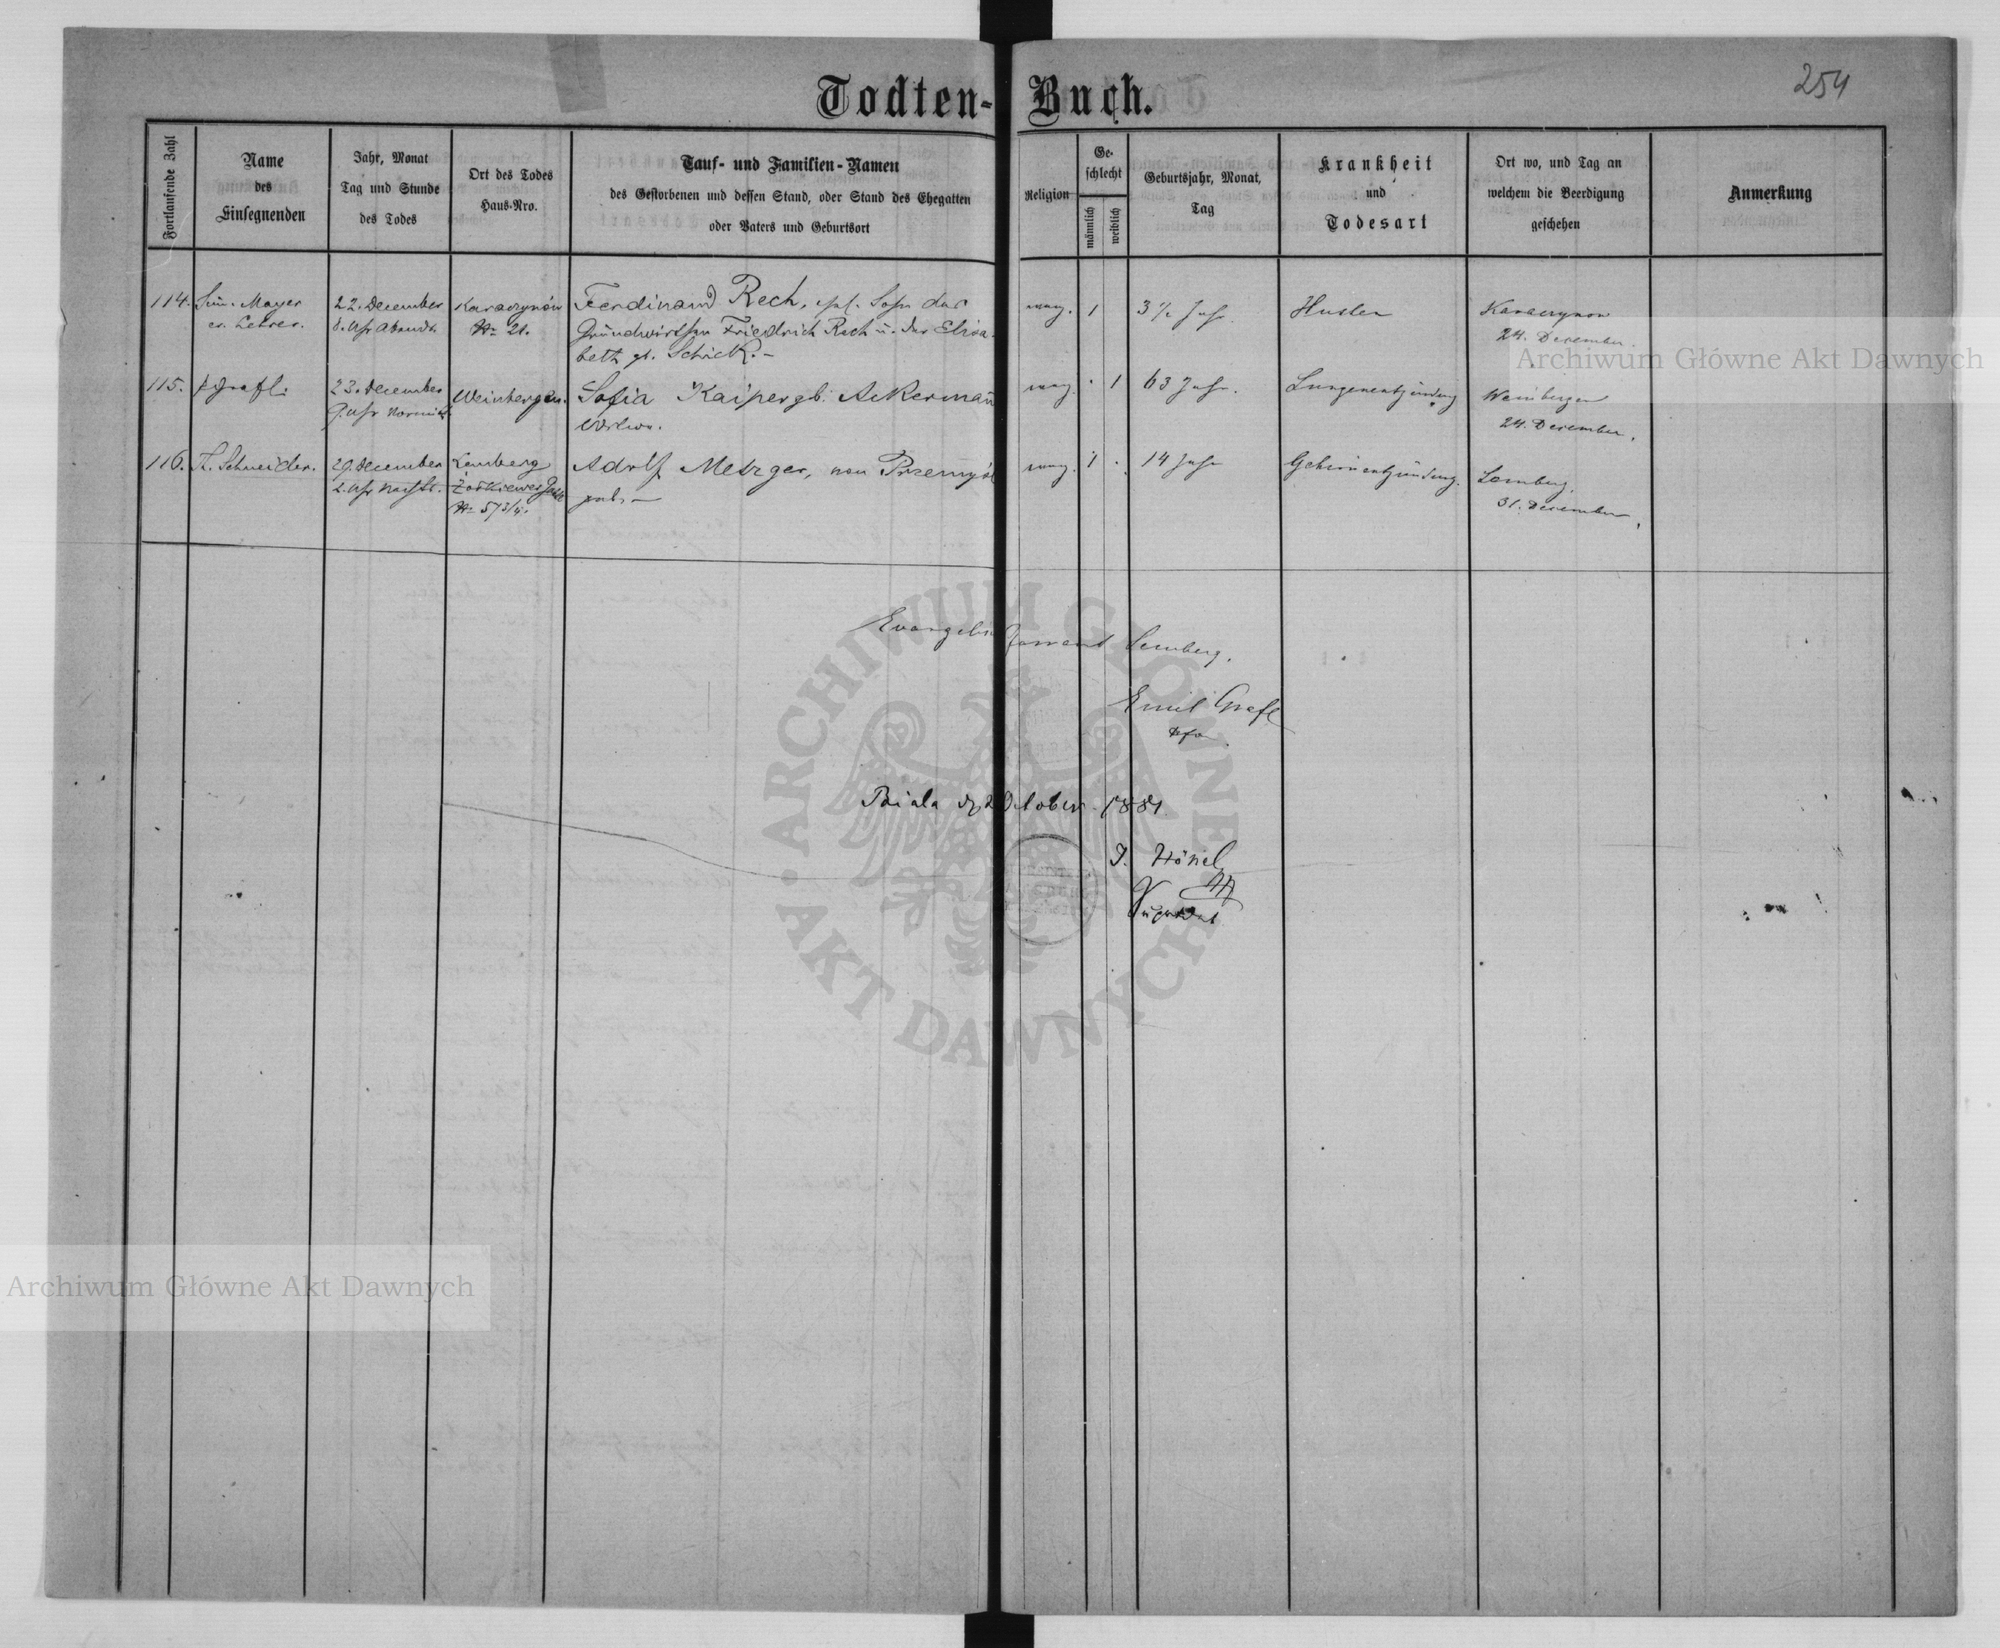 Todten-Buch.
254
Fortlaufende Zahl
Name
des
Einsegnenden
Jahr, Monat
Tag und Stunde
des Todes
Ort des Todes
Haus-Nro.
Tauf- und Familien-Namen
des Gestorbenen und dessen Stand, oder Stand des Ehegatten
oder Vaters und Geburtsort
Religion
Ge-
schlecht
männlich
weiblich
Geburtsjahr, Monat,
Tag
Krankheit
und
Todesart
Ort wo, und Tag an
welchem die Beerdigung
geschehen
Anmerkung
114.
Mayer
ev. Lehrer.
22. December
8. Uhr Abends.
Karaczynów
Nr 21.
Ferdinand Rech, ehl. Sohn des
Grundwirthen Friedrich Rech u. der Elisa-
beth gb. Schick. –
evang.
1
3 ½ Jahr
Husten
Karaczynow
24. December.
115.
Grafl.
23. December
9. Uhr Vormitt.
Weinbergen.
Sofia Kaiper gb. Ackermann
evang.
1
63 Jahr.
Lungenentzündung
Weinbergen
24. December.
116.
Th. Schneider.
29. December
2. Uhr Nachts.
Lemberg
Zołkiewer Gasse
Nr 573/4.
Adolf Metzger, von Przemyśl
evang.
1
14 Jahr
Gehirnentzündung.
Lemberg,
31. December.
Evangelis. Pfarramt Lemberg.
Emil Grafl
Pfr
Biala d. 2 October 1881.
J. Hönel
Archiwum Główne Akt Dawnych
Archiwum Główne Akt Dawnych
ARCHIWUM GŁÓWNE AKT DAWNYCH